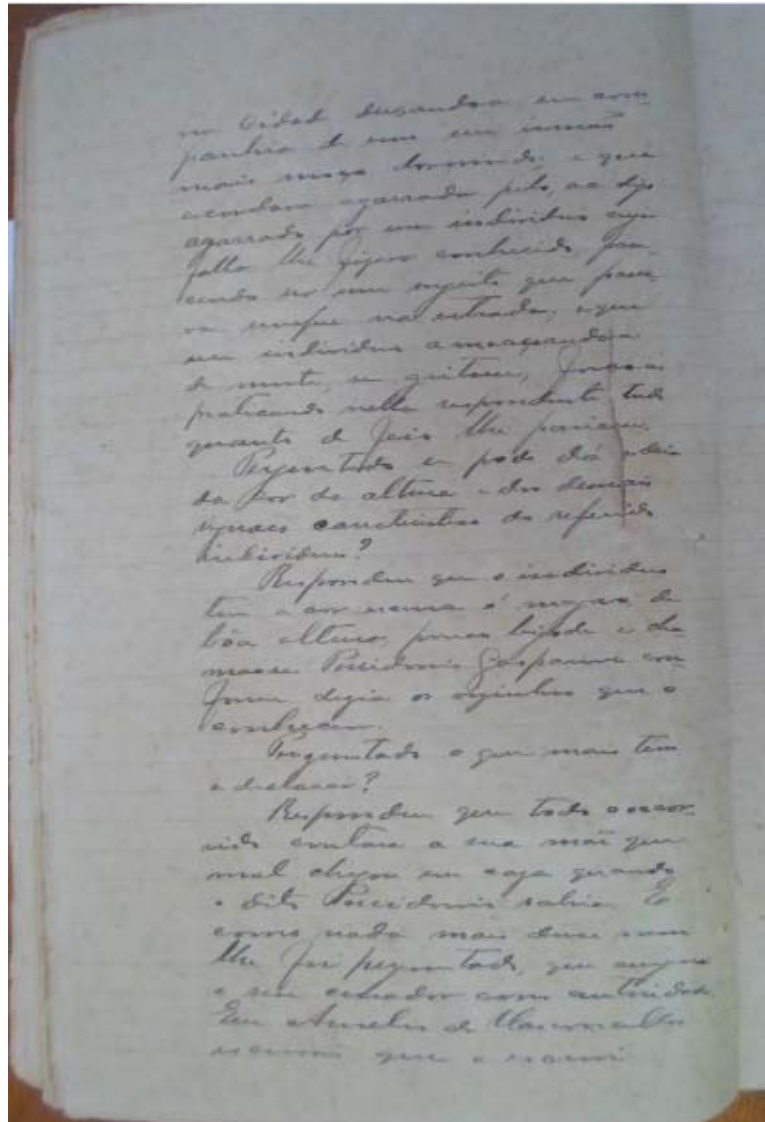 panhia de um seu irmão
mais moço dormindo, e que
acordara agarrada pelo, ou digo
agarrado por um individuo cuja
falla lhe figura conhecido, pare
cendo ser um sujeito que
na entrada, e que
um individuo ameaçando-a
de morte, se gritasse,
praticando nella respondente tudo
quanto de
Perguntado se pode dá a ideia
da cor da altura e dos demais
do referido
individuo?
Respondeu que o individuo
tem a cor morena é magro, de
bôa altura, pouco bigode e cha
masse Possidonio con
forme dizia os visinhos que o
conheçem.
Perguntado o que mais tem
a declarar?
Respondeu que todo o ocor
rido contara a sua mãi que
mal chegou em caza quando
o dito Possidonio sahia E
como nada mais disse nem
lhe foi perguntado, que
o seu curador com autoridade
Eu de Vasconcellos
escrivão que o escrevi